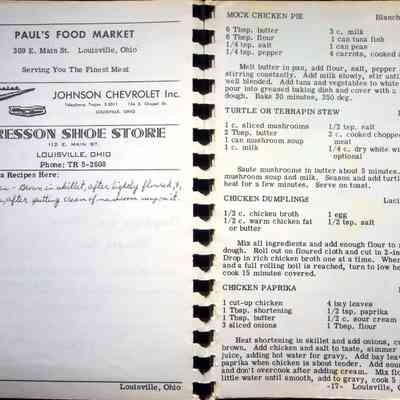 PAUL'S FOOD MARKET
309 E. Main St. Louisville, Ohio
Serving You The Finest Meat
JOHNSON CHEVROLET Inc.
LOUISVILLE, OHIO
RESSON SHOE STORE
112 E. MAIN ST.
LOUISVILLE, OHIO
Phone: TR 5-2608
Recipes Here:
Brown in skillet, after lightly floured,
after putting
Louisville, Ohio
MOCK CHICKEN PIE Blanch
6 Tbsp. butter 3 c. milk
6 Tbsp. flour 1 can tuna fish
1/4 tsp. salt 1 can peas
1/4 tsp. pepper 4 carrots, cooked
Melt butter in pan, add flour, salt, pepper
stirring constantly. Add milk slowly, stir until
well blended. Add tuna and vegetables to white
pour into greased baking dish and cover with a
dough. Bake 30 minutes, 350 deg.
TURTLE OR TERRAPIN STEW
1 c. sliced mushrooms 1/2 tsp. salt
2 Tbsp. butter 3 c. cooked chopped
1 can mushroom soup meat
1 c. milk 1/4 c. dry white wi
optional
Saute mushrooms in butter about 5 minutes.
mushroom soup and milk. Season and add turtle
heat for a few minutes. Serve on toast.
CHICKEN DUMPLINGS Luci
1/2 c. chicken broth 1 egg
1/2 c. warm chicken fat 1/2 tsp. salt
or butter
Mix all ingredients and add enough flour to
dough. Roll out on floured cloth and cut in 2-in
Drop in rich chicken broth one at a time. When
and a full rolling boil is reached, turn to low he
cook 15 minutes covered.
CHICKEN PAPRIKA
1 cut-up chicken 4 bay leaves
1 Tbsp. shortening 1/2 tsp. paprika
1 Tbsp. butter 1/2 c. sour cream
3 sliced onions 1 Tbsp. flour
Heat shortening in skillet and add onions, c
brown. Add chicken and salt to taste, simmer
juice, adding hot water for gravy. Add bay leav
paprika when chicken is about tender. Add sour
and don't overcook after adding cream. Mix flo
little water until smooth, add to gravy, cook 5
-17- Louisville, Oh